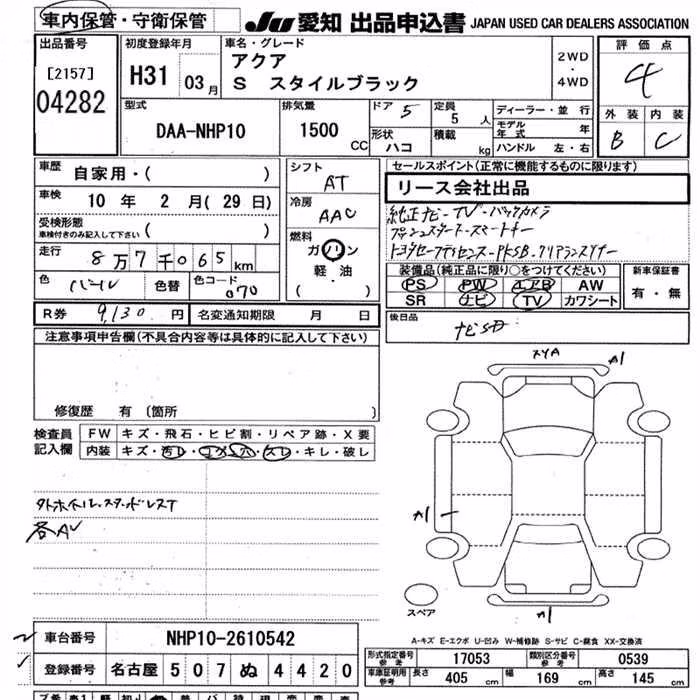 車内保管・守衛保管
JU 愛知 出品申込書 JAPAN USED CAR DEALERS ASSOCIATION
出品番号
[2157]
04282
初度登録年月
H31 03月
車名・グレード
アクア
S スタイルブラック
2WD
・
4WD
評価点
4
外装 内装
B C
型式
DAA-NHP10
排気量
1500 CC
ドア 5
形状 ハコ
定員 5 人
積載 kg
ディーラー・並行
モデル年式 年
ハンドル 左・右
車歴 自家用・( )
車検 10 年 2 月 ( 29 日)
受検形態
車検付きのみ記入して下さい ( )
走行 8万7千065km
色 パール 色替 色コード 070
シフト
AT
冷房
AAC
燃料
ガソリン
軽・油
( )
セールスポイント(正常に機能するものに限ります)
リース会社出品
純正ナビ-TV-バックカメラ
プッシュスタート-スマートキー
装備品(純正品に限り○をつけてください)
PS PW エアB AW
SR ナビ TV カワシート
新車保証書
有・無
R券 9,130 円 名変通知期限 月 日
後日品
ナビSD
注意事項申告欄(不具合内容等は具体的に記入して下さい)
修復歴 有 (箇所 )
検査員記入欄
FW キズ・飛石・ヒビ割・リペア跡・X要
内装 キズ・汚レ・コゲ・穴・スレ・キレ・破レ
各AU
XYA
A1
A1
A1
スペア
A-キズ E-エクボ U-凹み W-補修跡 S-サビ C-腐食 XX-交換済
車台番号 NHP10-2610542
登録番号 名古屋 507 ぬ 4420
形式指定番号 参考 17053 類別区分番号 参考 0539
車庫証明用 参考 長さ 405 cm 幅 169 cm 高さ 145 cm